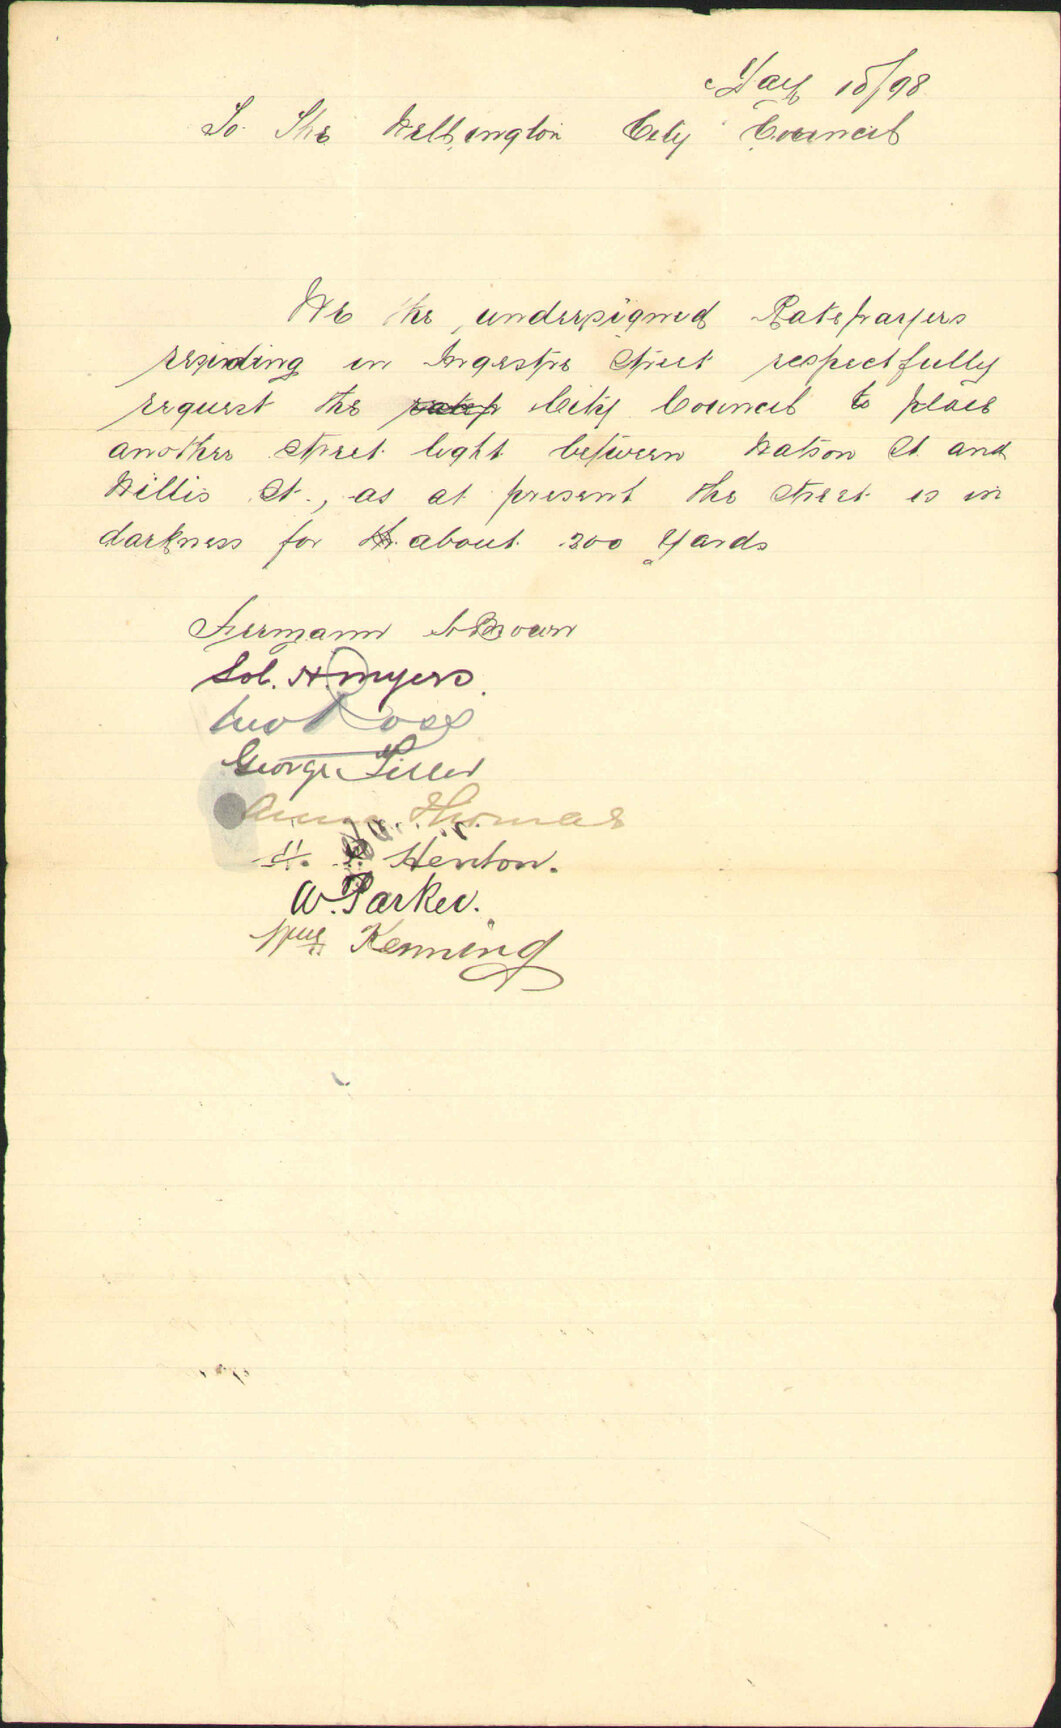 May 10/98
To The Wellington City Council
We the undersigned Ratepayers
residing in Ingestre Street respectfully
request the City Council to place
another street light between Watson St and
Willis St., as at present the street is in
darkness for about 200 Yards
Hermann
Sol. H. Myers
Rose
George
Thomas
H. Henton.
W. Parker.
Kenning